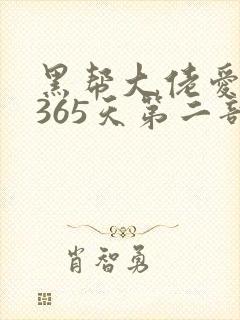 黑帮大佬爱
365天第二部
肖智勇